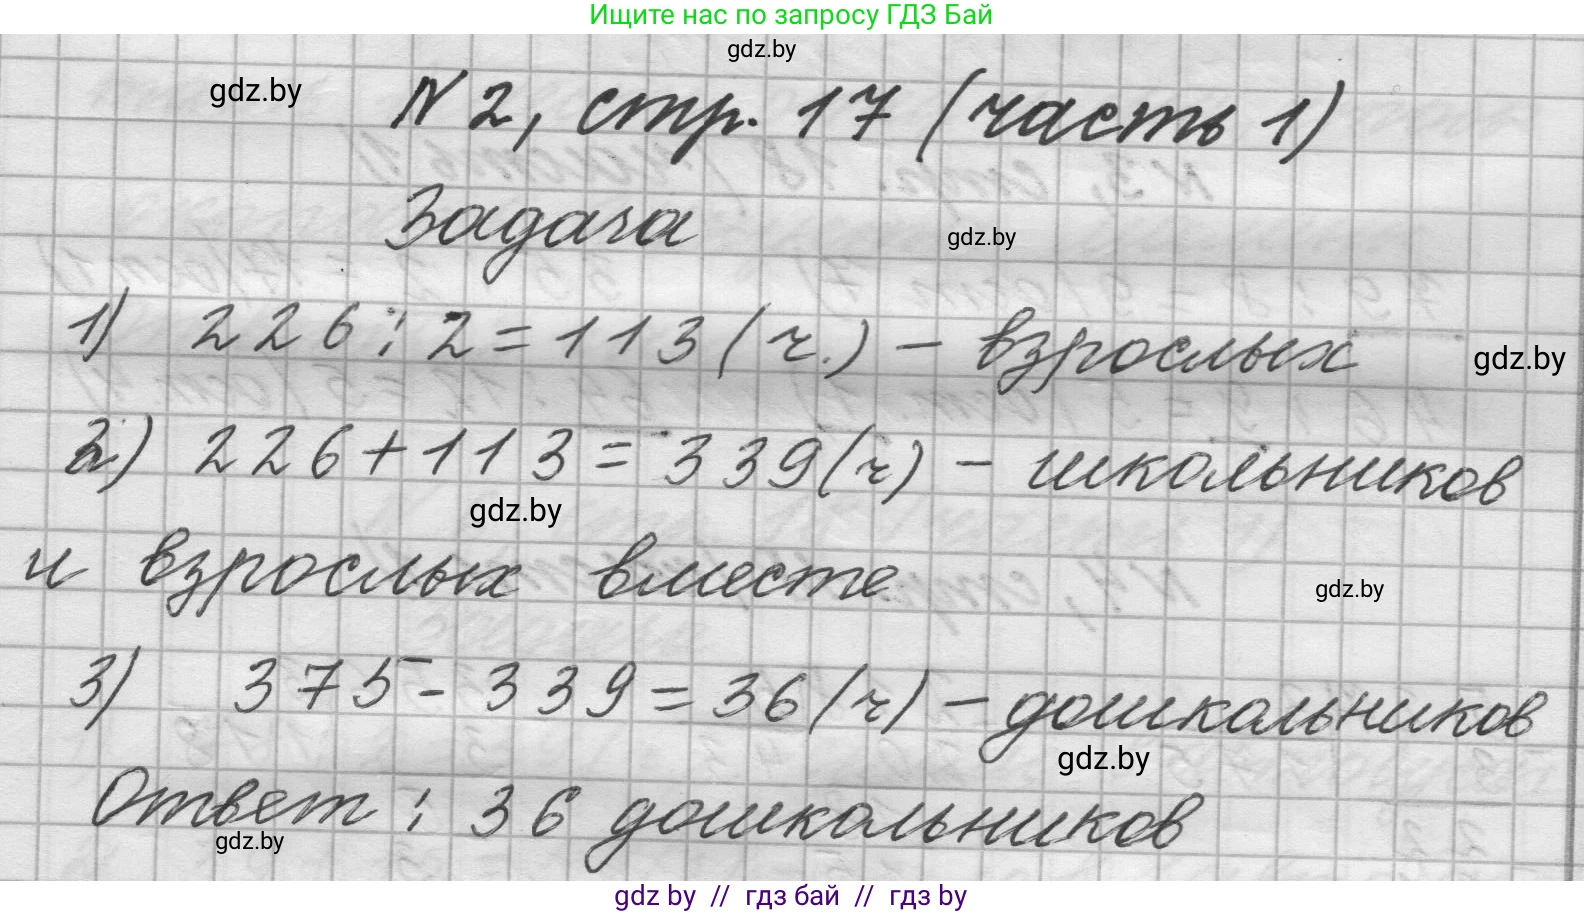 Ищите нас по запросу ГДЗ Бай
gdz.by
gdz.by
N 2, стр. 17 (часть 1)
Задача
gdz.by
1) 226 : 2 = 113 (ч.) - взрослых
gdz.by
2) 226 + 113 = 339 (ч) - школьников
gdz.by
и взрослых вместе
gdz.by
3) 375 - 339 = 36 (ч) - дошкольников
gdz.by
Ответ : 36 дошкольников
gdz.by
gdz by // гдз бай // гдз by